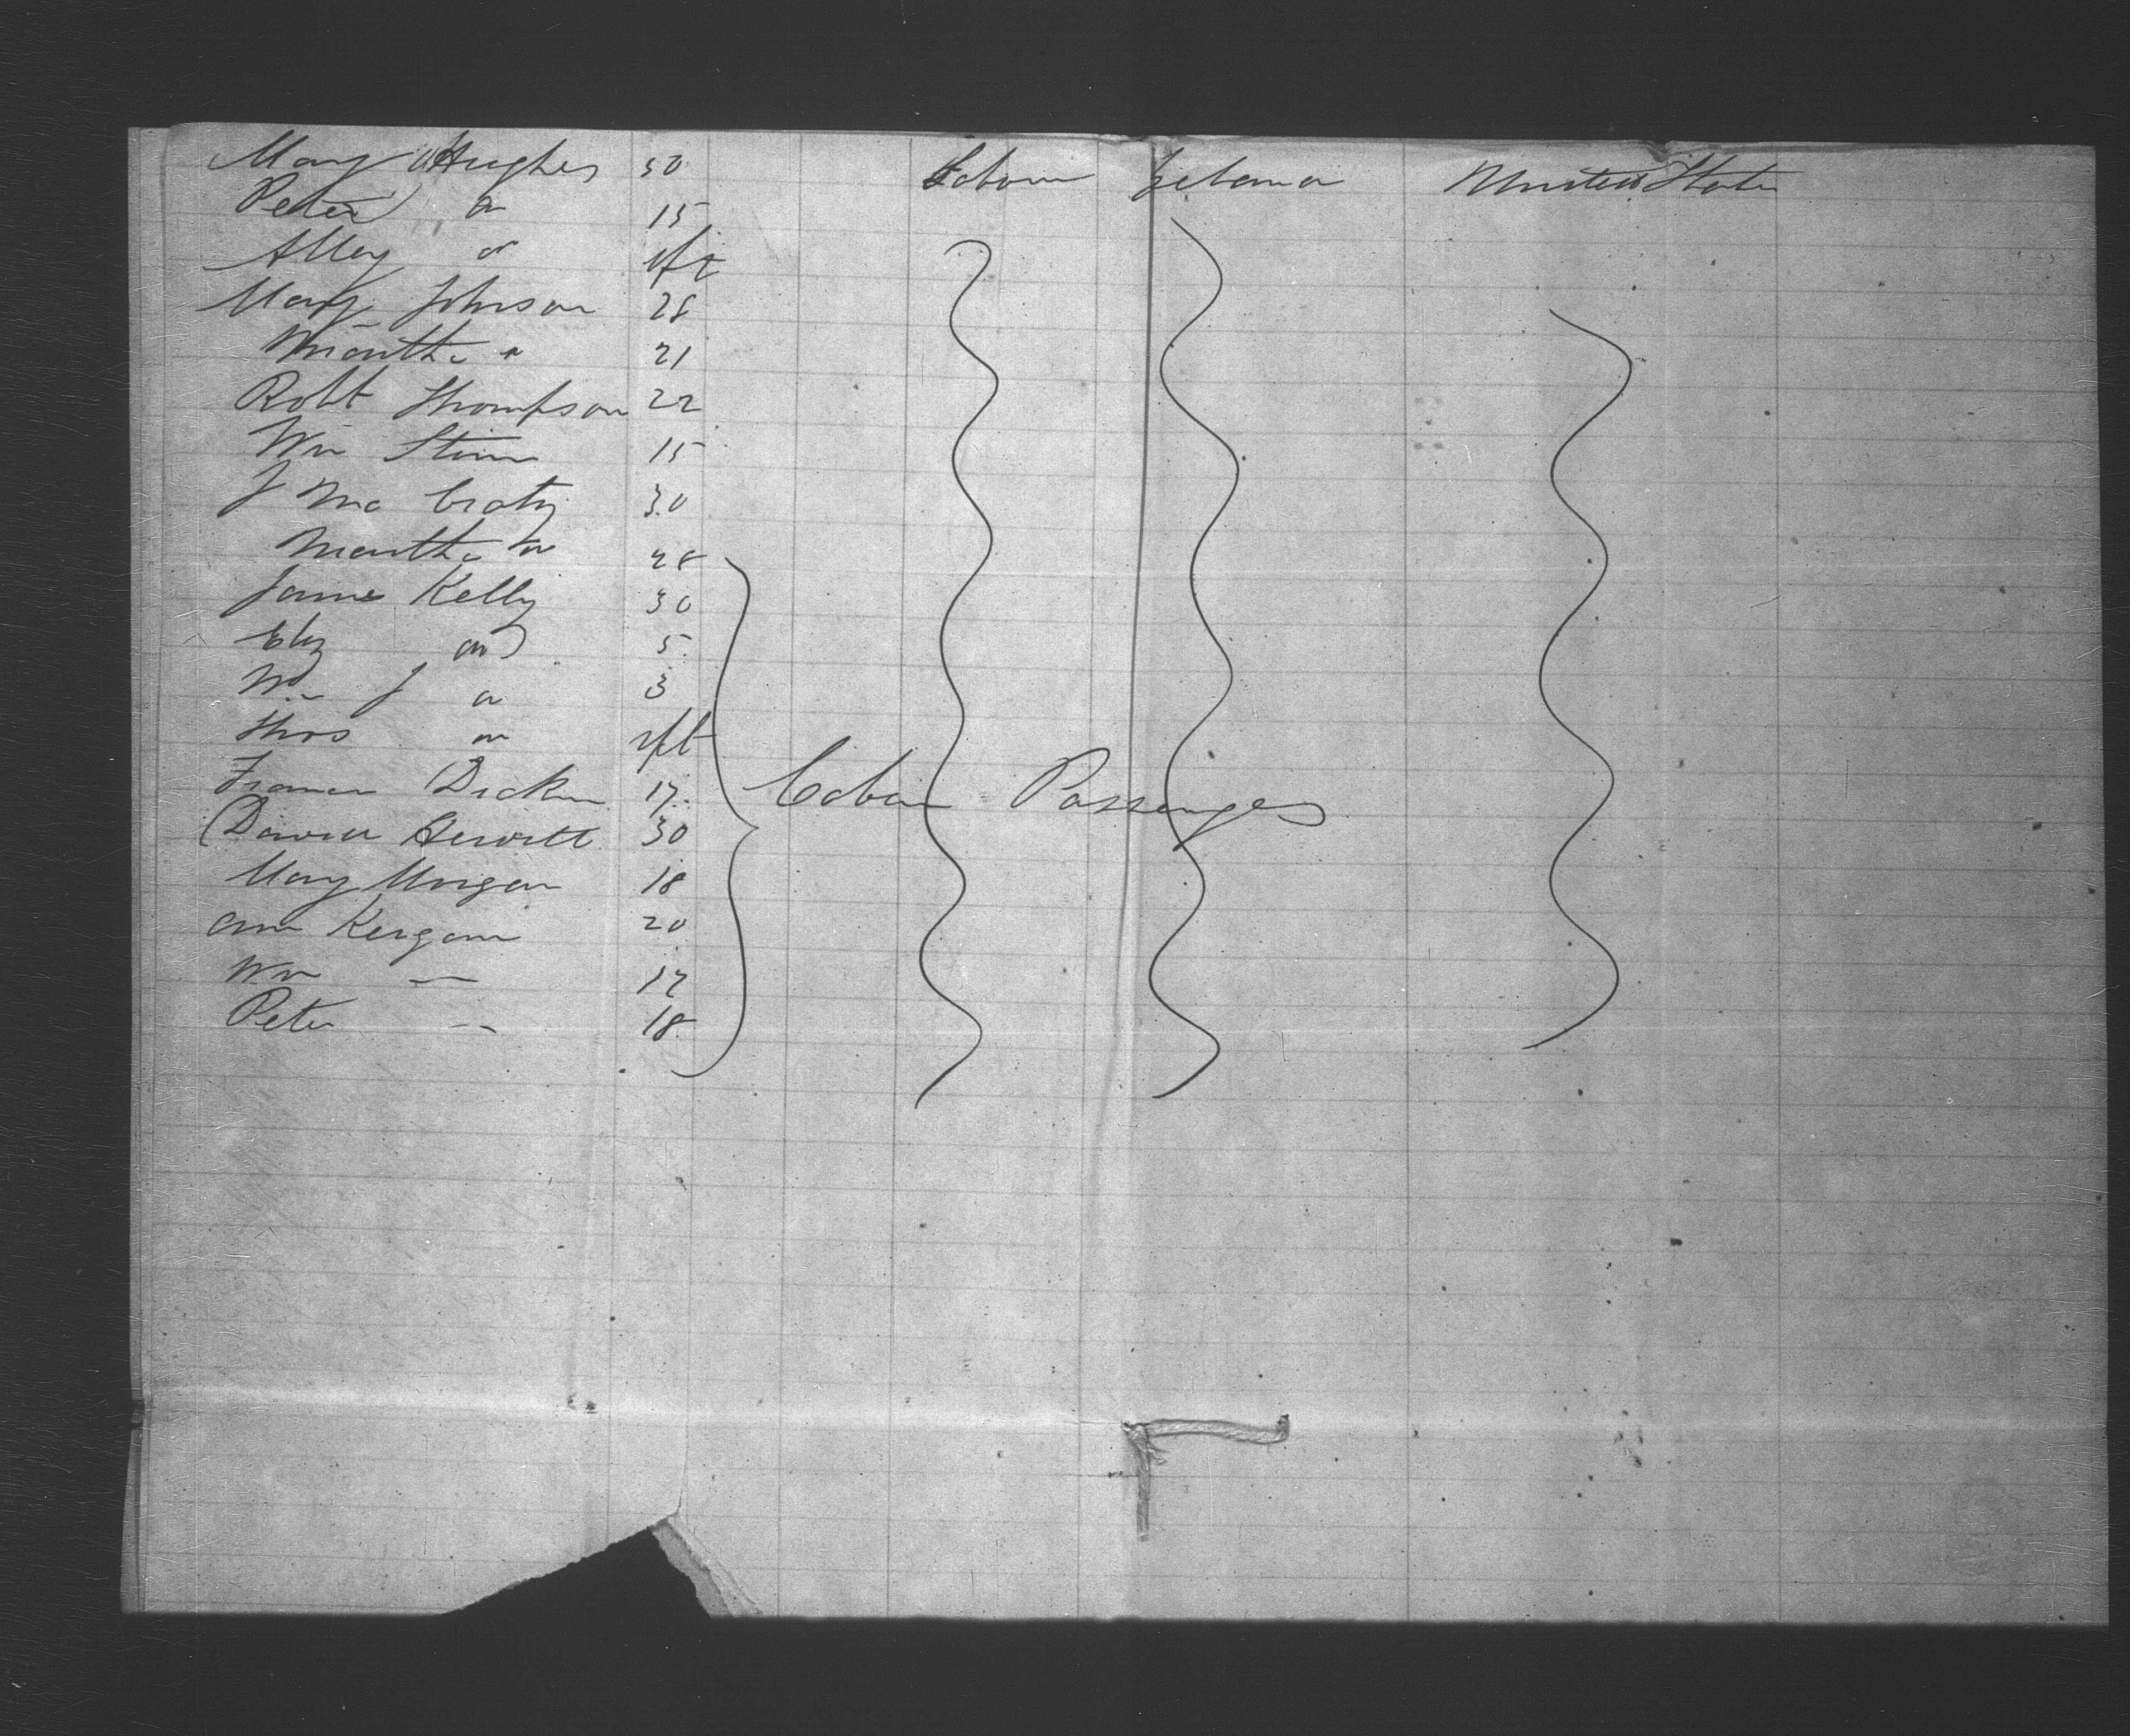 Mary Hughes 30 Labour Ireland United States
Peter " 15
Alley " ift
Mary Johnson 28
Martha " 21
Robt Thompson 22
Wm 15
J Mc Craty 30
Martha " 28
James Kelly 30
Eliz " 5
Wm J " 3
Thos " ift
Frances Dicken 17
David Hewitt 30
Mary Morgan 18
Ann Kergan 20
Wm — 17
Peter — 18
Cabin Passengers